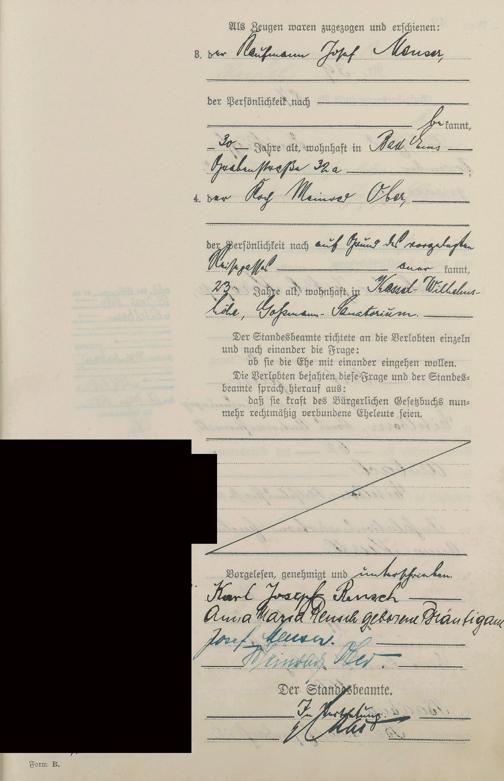 Als Zeugen waren zugezogen und erschienen:
3. der Kaufmann Josef Menser,
der Persönlichkeit nach
be kannt,
30 Jahre alt, wohnhaft in Bad Ems
Grabenstraße 32a
4. der Koch Meinrad Ober,
der Persönlichkeit nach auf Grund des vorgelegten
Reisepasses aner kannt,
23 Jahre alt, wohnhaft in Kassel-Wilhelms-
höhe, Goßmann-Sanatorium.
Der Standesbeamte richtete an die Verlobten einzeln
und nach einander die Frage:
ob sie die Ehe mit einander eingehen wollen.
Die Verlobten bejahten diese Frage und der Standes-
beamte sprach hierauf aus:
daß sie kraft des Bürgerlichen Gesetzbuchs nun-
mehr rechtmäßig verbundene Eheleute seien.
Vorgelesen, genehmigt und unterschrieben.
Karl Joseph Rensch
Anna Maria Rensch geborene
Josef Menser.
Meinrad Ober.
Der Standesbeamte.
In Vertretung
Form B.